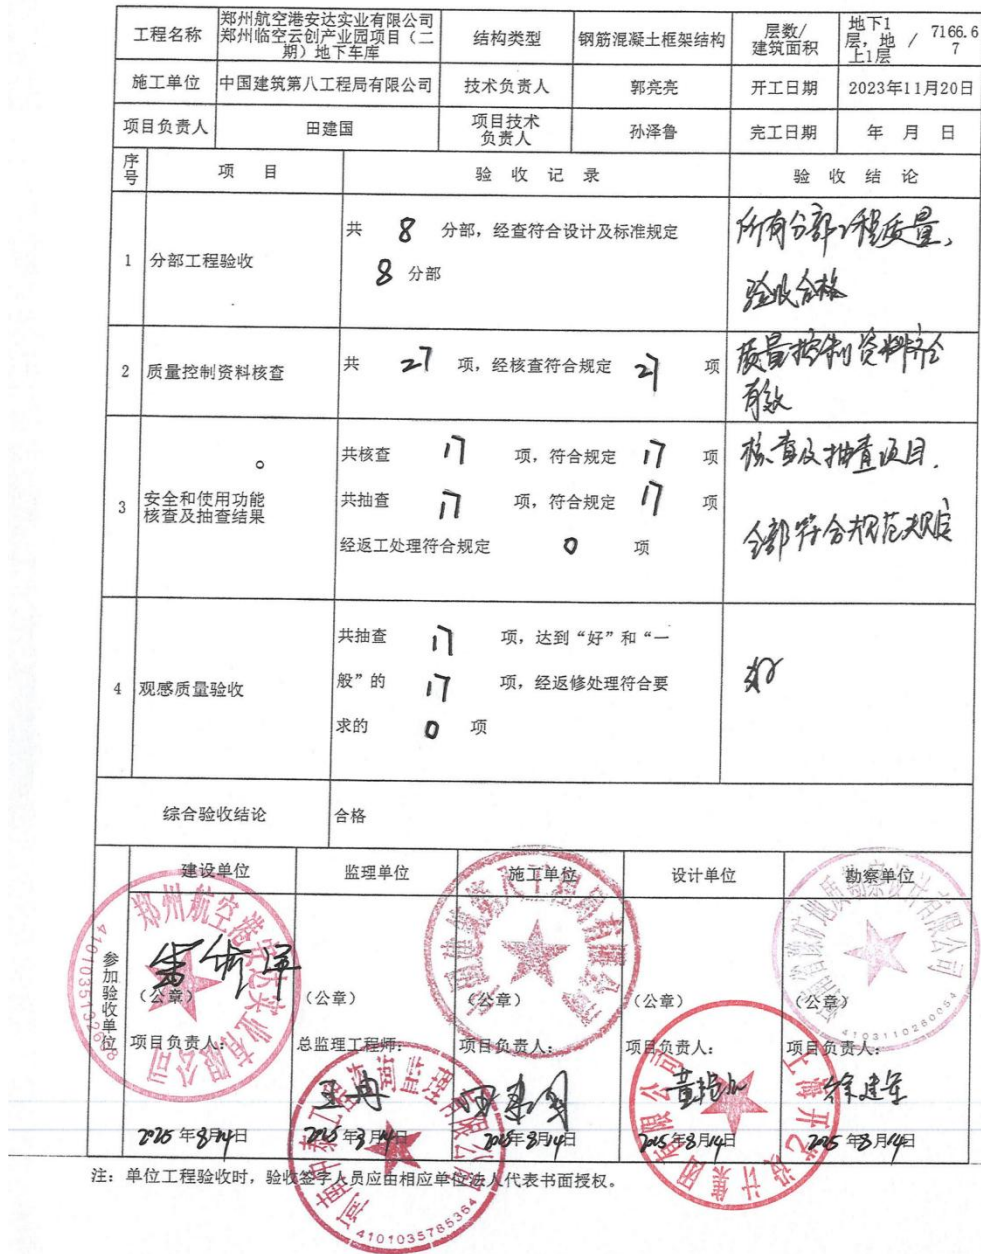 工程名称
郑州航空港安达实业有限公司
郑州临空云创产业园项目（二
期）地下车库
结构类型
钢筋混凝土框架结构
层数/
建筑面积
地下1
层，地
上1层
/
7166.6
7
施工单位
中国建筑第八工程局有限公司
技术负责人
郭亮亮
开工日期
2023年11月20日
项目负责人
田建国
项目技术
负责人
孙泽鲁
完工日期
年 月 日
序号
项 目
验 收 记 录
验 收 结 论
1
分部工程验收
共 8 分部，经查符合设计及标准规定
8 分部
所有分部工程质量，
验收合格
2
质量控制资料核查
共 27 项，经核查符合规定 27 项
质量控制资料齐全
有效
3
安全和使用功能
核查及抽查结果
共核查 17 项，符合规定 17 项
共抽查 17 项，符合规定 17 项
经返工处理符合规定 0 项
核查及抽查项目，
全部符合规范规定
4
观感质量验收
共抽查 17 项，达到“好”和“一
般”的 17 项，经返修处理符合要
求的 0 项
好
综合验收结论
合格
参加验收单位
建设单位
监理单位
施工单位
设计单位
勘察单位
郑州航空港安达实业有限公司
（公章）
（公章）
（公章）
（公章）
（公章）
项目负责人：
总监理工程师：
项目负责人：
项目负责人：
项目负责人：
王冉
田建国
徐建军
2025年8月14日
2025年8月14日
2025年8月14日
2025年8月14日
2025年8月14日
4101035785364
注：单位工程验收时，验收签字人员应由相应单位法人代表书面授权。